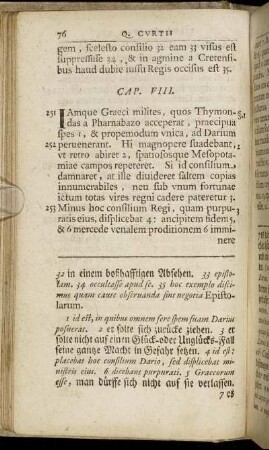 76 Q. CVRTII
gem, scelesto consilio 32 eam 33 visus est
suppressisse 34, & in agmine a Cretensi-
bus haud dubie iussu Regis occisus est 35.
CAP. VIII.
251 IAmque Graeci milites, quos Thymon-
das a Pharnabazo acceperat, praecipua
spes 1, & propemodum vnica, ad Darium
252 peruenerant. Hi magnopere suadebant,
vt retro abiret 2, spatiososque Mesopota-
miae campos repeteret. Si id consilium
damnaret, at ille diuideret saltem copias
innumerabiles, neu sub vnum fortunae
ictum totas vires regni cadere pateretur 3.
253 Minus hoc consilium Regi, quam purpu-
ratis eius, displicebat 4: ancipitem fidem 5,
& 6 mercede venalem proditionem 6 immi
nere
32 in einem boßhafftigen Absehen. 33 episto-
lam. 34 occultasse apud se. 35 hoc exemplo disci-
mus quam caute obsirvanda sint negotia Episto-
larum.
1 id est, in quibus omnem fere spem suam Darius
posuerat. 2 er solte sich zurücke ziehen. 3 er
solte nicht auf einen Glück- oder Unglücks-Fall
seine gantze Macht in Gefahr setzen. 4 id est:
placebat hoc consilium Dario, sed displicebat mi-
nistris eius. 6 dicebant purpurati. 5 Graecorum
esse, man dürffe sich nicht auf sie verlassen.